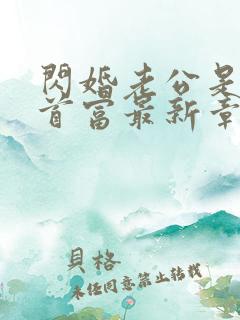 閃婚老公是
首富最新章
貝格
未经同意禁止转载